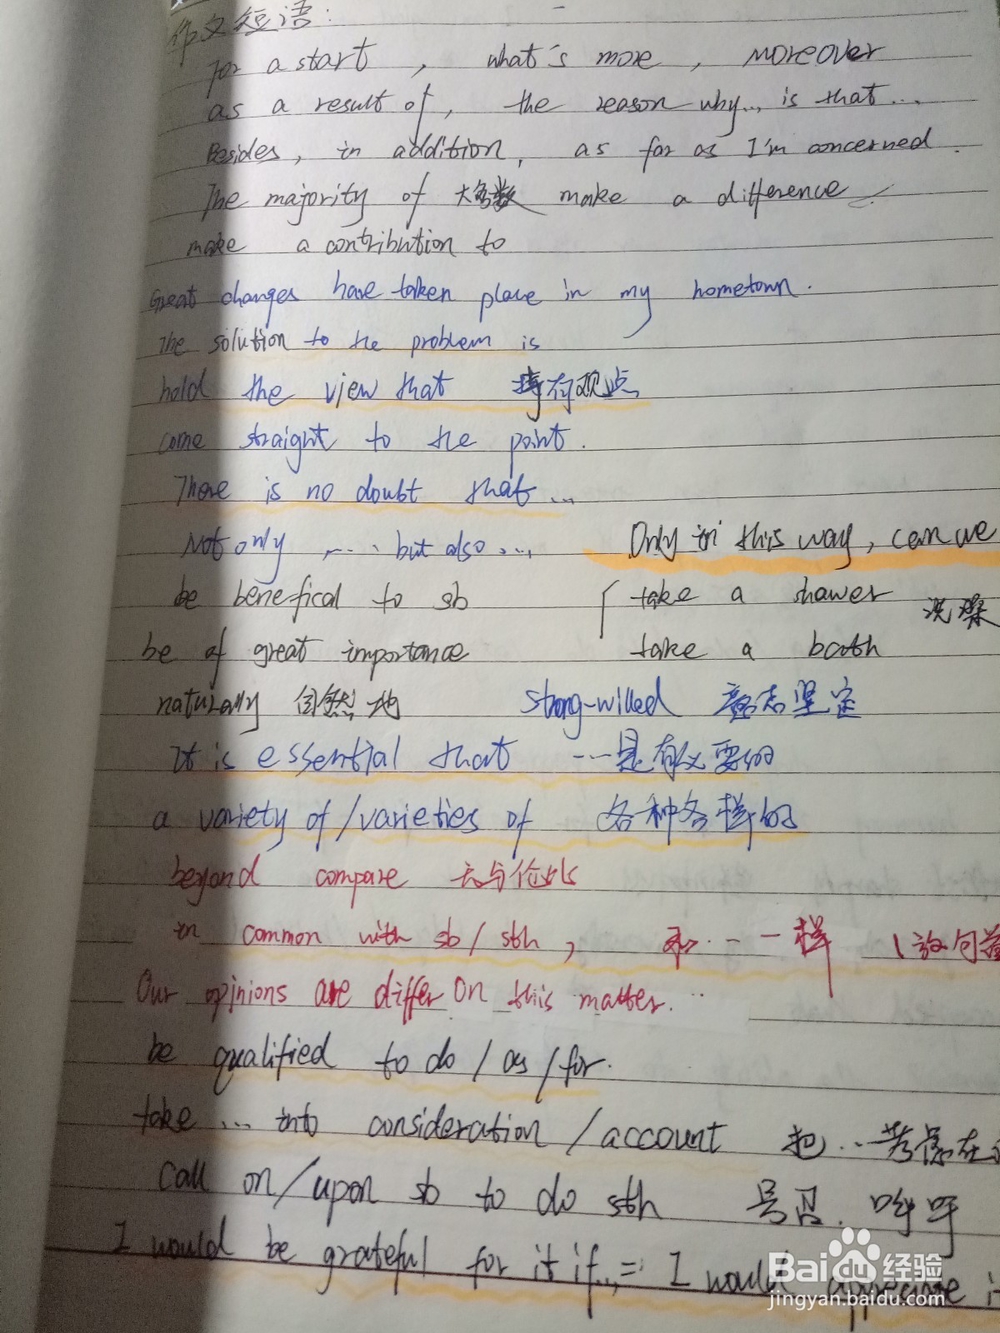 作文短语:
for a start , what's more , moreover
as a result of , the reason why... is that...
Besides , in addition , as far as I'm concerned .
The majority of 大多数 make a difference
make a contribution to
Great changes have taken place in my hometown .
The solution to the problem is
hold the view that 持有观点
come straight to the point .
There is no doubt that ...
Not only .... but also .... Only in this way , can we
be benefical to sb take a shower 洗澡
be of great importance take a bath
naturally 自然地 strong-willed 意志坚定
It is essential that ...是有必要的
a variety of / varieties of 各种各样的
beyond compare 无与伦比
in common with sb / sth , 和...一样 (放句首
Our opinions are differ on this matter. ..
be qualified to do / as / for .
take ... into consideration / account 把...考虑在
call on / upon sb to do sth 号召 . 呼吁
I would be grateful for it if... = I would appreciate it
Baidu 经验
jingyan.baidu.com